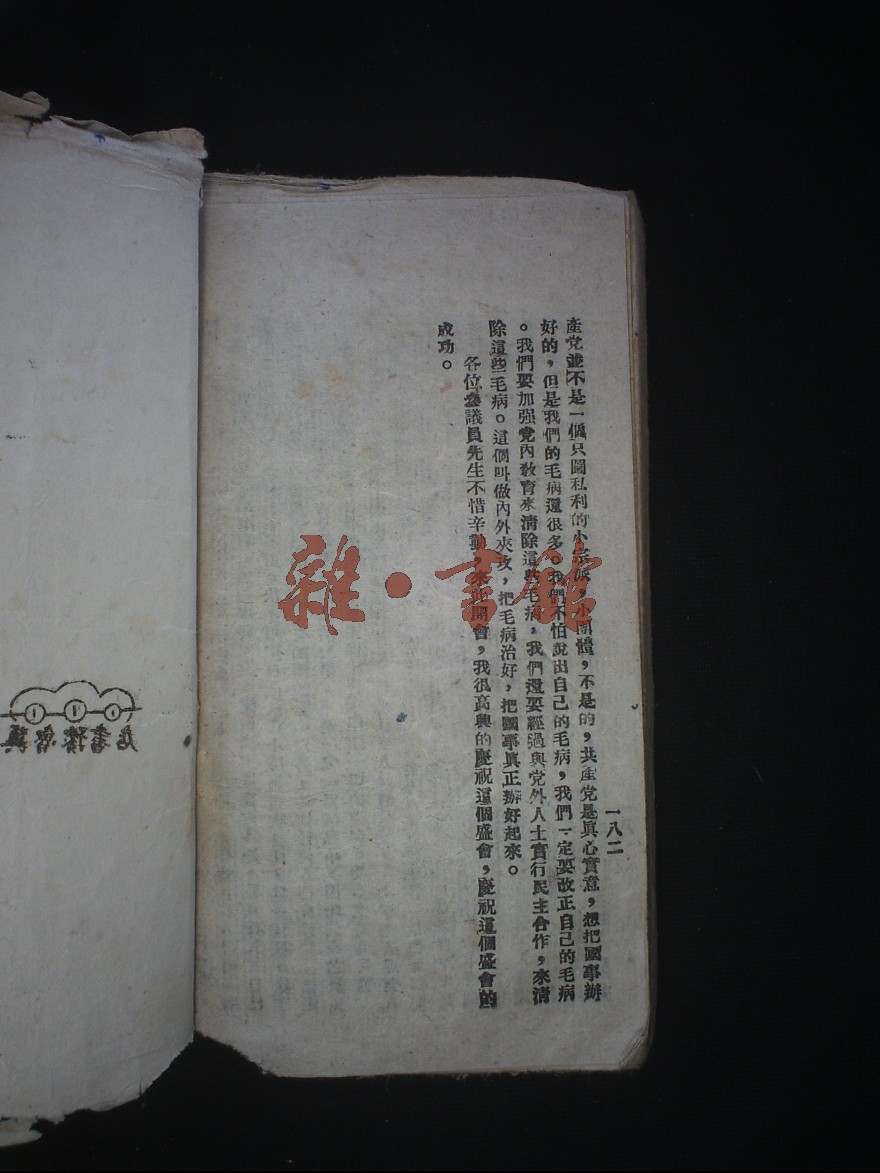 一八二
產党並不是一個只圖私利的小宗派，小團體，不是的，共產党是眞心實意，想把國事辦
好的，但是我們的毛病還很多。我們不怕說出自己的毛病，我們一定要改正自己的毛病
。我們要加强党內敎育來清除這些毛病，我們還要經過與党外人士實行民主合作，來清
除這些毛病。這個叫做內外夾攻，把毛病治好，把國事眞正辦好起來。
各位參議員先生不惜辛勤，來此開會，我很高興的慶祝這個盛會，慶祝這個盛會的
成功。
雜·書館
冀魯豫書店